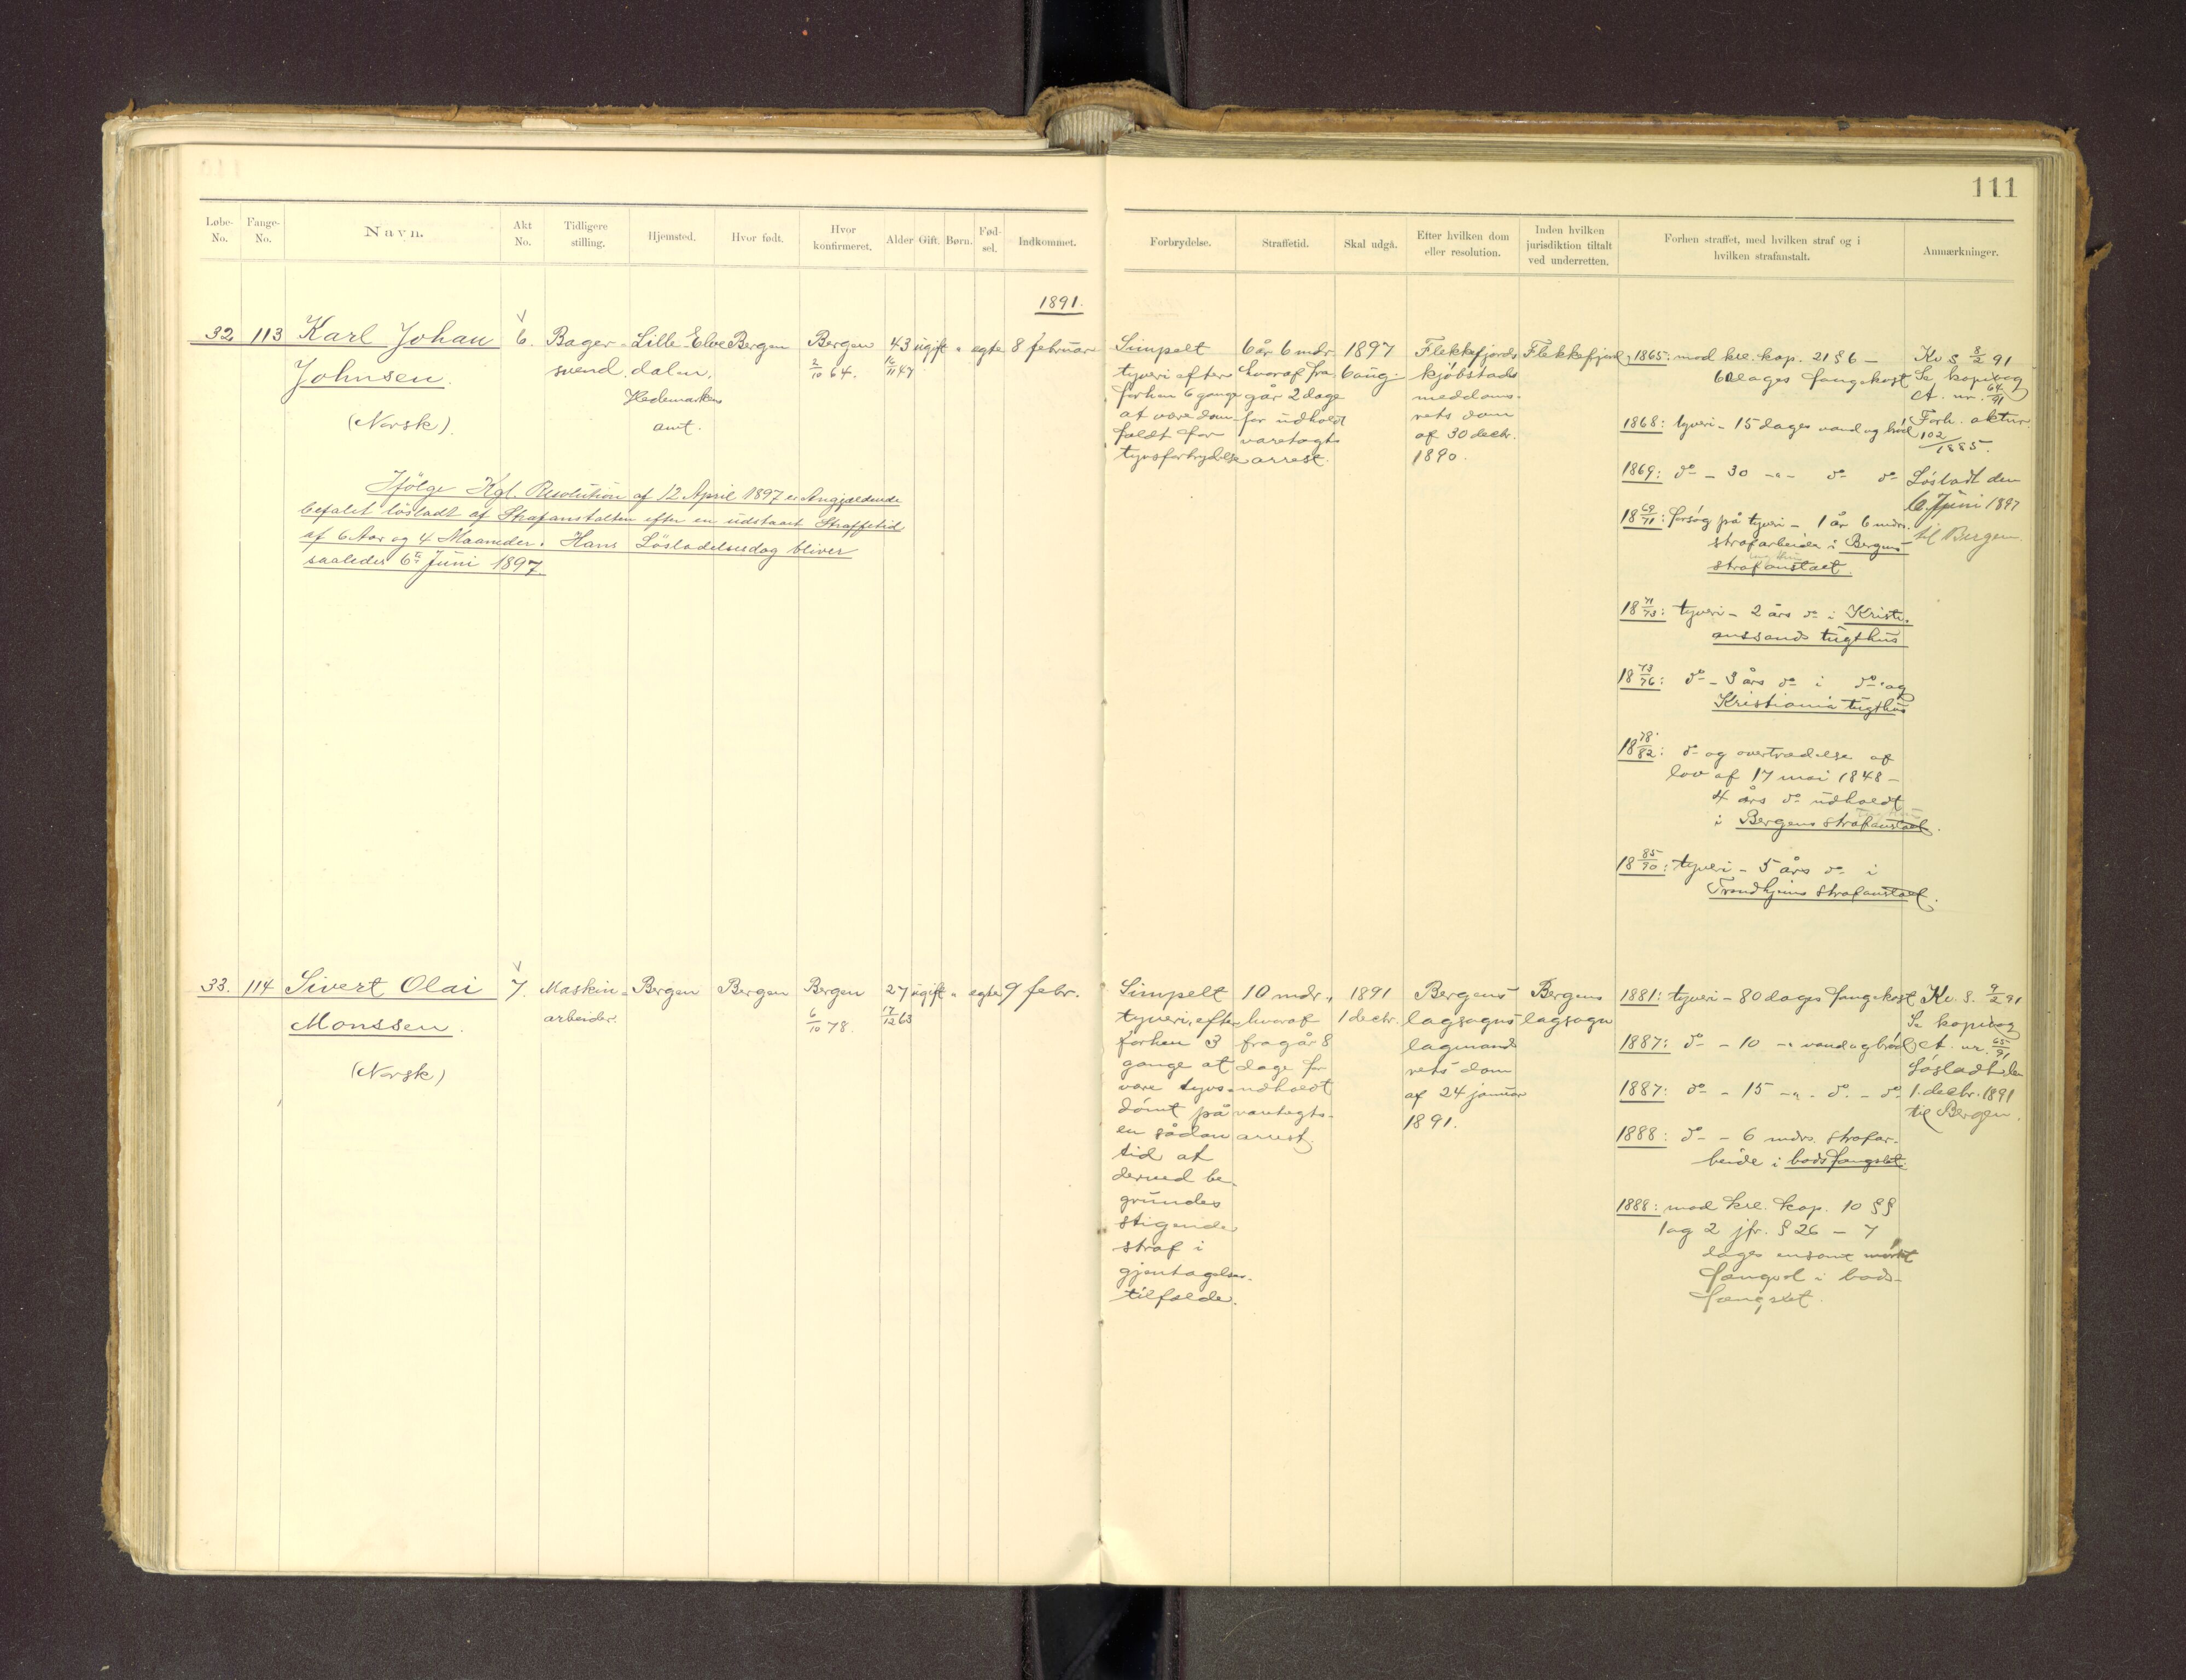 111
Løbe-No.
Fange-No.
Navn.
Akt No.
Tidligere stilling.
Hjemsted.
Hvor født.
Hvor konfirmeret.
Alder
Gift.
Børn.
Fødsel.
Indkommet.
Forbrydelse.
Straffetid.
Skal udgå.
Efter hvilken dom eller resolution.
Inden hvilken jurisdiktion tiltalt ved underretten.
Forhen straffet, med hvilken straf og i hvilken strafanstalt.
Anmærkninger.
1891.
32
113
Karl Johan
Johnsen.
(Norsk).
6.
Bager-
svend.
Lille Elve
dalen,
Hedemarkens
amt.
Bergen
Bergen
2/10 64.
43
16/11 47
ugift
"
egte
8 februar
Simpelt
tyveri efter
forhen 6 gange
at være døm-
fældt for
tyvsforbrydelse
6 år 6 mdr.
hvoraf fra
går 2 dage
for udholdt
varetægts
arrest.
1897
6 aug.
Flekkefjords
kjøbstads
meddoms-
rets dom
af 30 decbr.
1890.
Flekkefjord
1865: mod krl. kap. 21 § 6 –
6 dages fangekost
1868: tyveri – 15 dages vand og brød
1869: do – 30 -"- do do
18 69/71: forsøg på tyveri – 1 år 6 mdrs.
strafarbeide i Bergens
strafanstalt.
18 71/73: tyveri – 2 års do i Kristi-
anssands tugthus
18 73/76: do – 3 års do i do og
Kristiania tugthus
18 78/82: do og overtrædelse af
lov af 17 mai 1848 –
4 års do udholdt
i Bergens strafanstalt.
18 85/90: tyveri – 5 års do i
Trondhjems strafanstalt.
Kv § 8/2 91
Se kopibog
A. nr. 64/91
Forh. aktnr
102/1885.
Løsladt den
6. Juni 1897
til Bergen.
Ifølge Kgl. Resolution af 12 April 1897 er Angjældende
befalet løsladt af Strafanstalten efter en udstaaet Straffetid
af 6 Aar og 4 Maaneder. Hans Løsladelsesdag bliver
saaledes 6te Juni 1897.
33.
114
Sivert Olai
Monssen.
(Norsk)
7.
Maskin-
arbeider.
Bergen
Bergen
Bergen
6/10 78.
27
17/12 63
ugift
"
egte
9 febr.
Simpelt
tyveri, efter
forhen 3
gange at
være tyvs-
dømt på
en sådan
tid at
derved be-
grundes
stigende
straf i
gjentagelses-
tilfælde.
10 mdr.,
hvoraf
fragår 8
dage for
udholdt
varetægts-
arrest.
1891
1 decbr.
Bergens
lagsogns
lagmands
rets dom
af 24 januar
1891.
Bergens
lagsogn
1881: tyveri – 80 dages fangekost
1887: do – 10 -" vand og brød
1887: do – 15 -"- do – do
1888: do – 6 mdrs. strafar-
beide i bodsfængslet.
1888: mod krl. kap. 10 §§
1 og 2 jfr. § 26 – 7
dages ensomt mørkt
fængsel i bods-
fængslet.
Kv. §. 9/2 91
Se kopibog
A. nr. 65/91
Løsladt den
1. decbr. 1891
til Bergen.